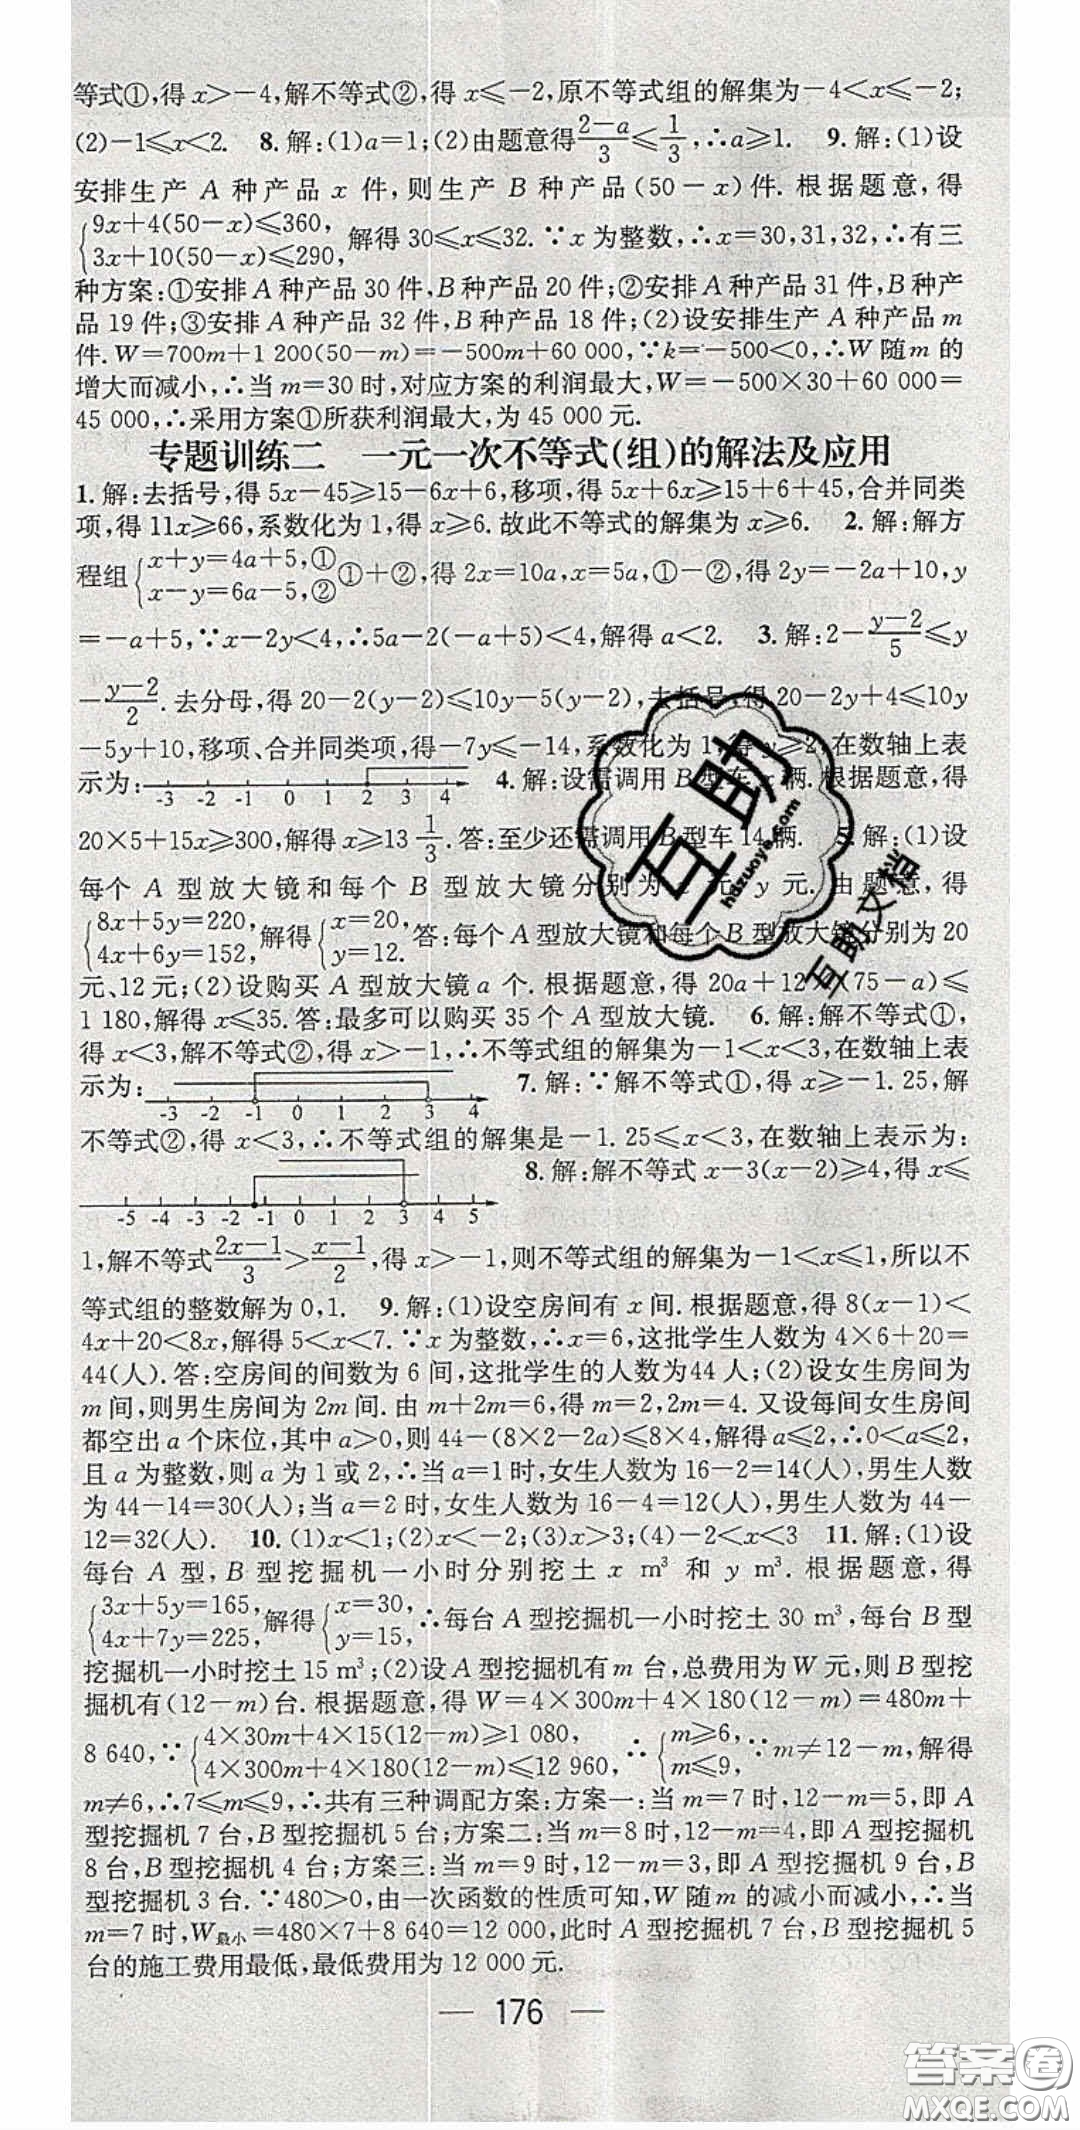 等式①,得 x>-4,解不等式②,得 x≤-2,原不等式组的解集为-4<x≤-2;
(2)-1≤x<2. 8. 解:(1)a=1;(2)由题意得(2-a)/3≤1/3,∴a≥1. 9. 解:(1)设
安排生产 A 种产品 x 件,则生产 B 种产品(50-x)件. 根据题意,得
{9x+4(50-x)≤360,
3x+10(50-x)≤290, 解得 30≤x≤32. ∵x 为整数,∴x=30,31,32,∴有三
种方案:①安排 A 种产品 30 件,B 种产品 20 件;②安排 A 种产品 31 件,B 种产
品 19 件;③安排 A 种产品 32 件,B 种产品 18 件;(2)设安排生产 A 种产品 m
件. W=700m+1 200(50-m)=-500m+60 000,∵k=-500<0,∴W 随 m 的
增大而减小,∴当 m=30 时,对应方案的利润最大,W=-500×30+60 000=
45 000,∴采用方案①所获利润最大,为 45 000 元.
专题训练二 一元一次不等式(组)的解法及应用
1. 解:去括号,得 5x-45≥15-6x+6,移项,得 5x+6x≥15+6+45,合并同类
项,得 11x≥66,系数化为 1,得 x≥6. 故此不等式的解集为 x≥6. 2. 解:解方
程组{x+y=4a+5,①
x-y=6a-5,② ①+②,得 2x=10a,x=5a,①-②,得 2y=-2a+10,y
=-a+5,∵x-2y<4,∴5a-2(-a+5)<4,解得 a<2. 3. 解:2-(y-2)/5≤y
-(y-2)/2. 去分母,得 20-2(y-2)≤10y-5(y-2),去括号,得 20-2y+4≤10y
-5y+10,移项、合并同类项,得-7y≤-14,系数化为 1,得 y≥2,在数轴上表
示为: -3 -2 -1 0 1 2 3 4 4. 解:设需调用 B 型车 x 辆. 根据题意,得
20×5+15x≥300,解得 x≥13 1/3. 答:至少还需调用 B 型车 14 辆. 5. 解:(1)设
每个 A 型放大镜和每个 B 型放大镜分别为 x 元,y 元. 由题意,得
{8x+5y=220,
4x+6y=152, 解得{x=20,
y=12. 答:每个 A 型放大镜和每个 B 型放大镜分别为 20
元、12 元;(2)设购买 A 型放大镜 a 个. 根据题意,得 20a+12×(75-a)≤
1 180,解得 x≤35. 答:最多可以购买 35 个 A 型放大镜. 6. 解:解不等式①,
得 x<3,解不等式②,得 x>-1,∴不等式组的解集为-1<x<3,在数轴上表
示为: -3 -2 -1 0 1 2 3 4 7. 解:∵解不等式①,得 x≥-1. 25,解
不等式②,得 x<3,∴不等式组的解集是-1. 25≤x<3,在数轴上表示为:
-5 -4 -3 -2 -1 0 1 2 3 4 5 8. 解:解不等式 x-3(x-2)≥4,得 x≤
1,解不等式(2x-1)/3>(x-1)/2,得 x>-1,则不等式组的解集为-1<x≤1,所以不
等式组的整数解为 0,1. 9. 解:(1)设空房间有 x 间. 根据题意,得 8(x-1)<
4x+20<8x,解得 5<x<7. ∵x 为整数,∴x=6,这批学生人数为 4×6+20=
44(人). 答:空房间的间数为 6 间,这批学生的人数为 44 人;(2)设女生房间为
m 间,则男生房间为 2m 间. 由 m+2m=6,得 m=2,2m=4. 又设每间女生房间
都空出 a 个床位,其中 a>0,则 44-(8×2-2a)≤8×4,解得 a≤2,∴0<a≤2,
且 a 为整数,则 a 为 1 或 2,∴当 a=1 时,女生人数为 16-2=14(人),男生人数
为 44-14=30(人);当 a=2 时,女生人数为 16-4=12(人),男生人数为 44-
12=32(人). 10. (1)x<1;(2)x<-2;(3)x>3;(4)-2<x<3 11. 解:(1)设
每台 A 型,B 型挖掘机一小时分别挖土 x m³ 和 y m³. 根据题意,得
{3x+5y=165,
4x+7y=225, 解得{x=30,
y=15, ∴每台 A 型挖掘机一小时挖土 30 m³,每台 B 型
挖掘机一小时挖土 15 m³;(2)设 A 型挖掘机有 m 台,总费用为 W 元,则 B 型挖
掘机有(12-m)台. 根据题意,得 W=4×300m+4×180(12-m)=480m+
8 640,∵{4×30m+4×15(12-m)≥1 080,
4×300m+4×180(12-m)≤12 960, ∴{m≥6,
m≤9, ∵m≠12-m,解得
m≠6,∴7≤m≤9,∴共有三种调配方案;方案一:当 m=7 时,12-m=5,即 A
型挖掘机 7 台,B 型挖掘机 5 台;方案二:当 m=8 时,12-m=4,即 A 型挖掘机
8 台,B 型挖掘机 4 台;方案三:当 m=9 时,12-m=3,即 A 型挖掘机 9 台,B
型挖掘机 3 台. ∵480>0,由一次函数的性质可知,W 随 m 的减小而减小,∴当
m=7 时,W最小=480×7+8 640=12 000,此时 A 型挖掘机 7 台,B 型挖掘机 5
台的施工费用最低,最低费用为 12 000 元.
— 176 —
互助
hdzuoye.com
互助文档
答案圈
MXQE.COM